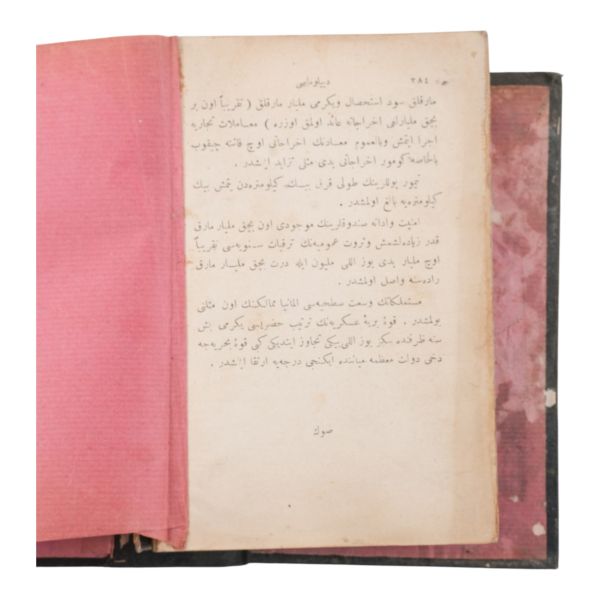 ٢٨٤ دیپلوماسی
مارقلق سود استحصال ویکرمی ملیار مارقلق ( تقریباً اون بر
بچق ملیارلقی اخراجاته عائد اولمق اوزره ) معاملات تجاریه
اجرا ایتمش وبالعموم معادنك اخراجاتی اوچ قاتنه چیقوب
بالخاصه کومور اخراجاتی یدی مثلی تزاید ایتمشدر .
تیمور یوللرینك طولی قرق بیك کیلومترودن یتمش بیك
کیلومترویه بالغ اولمشدر .
امنیت وادانه صندوقلرینك موجودی اون بچق ملیار مارق
قدر زیاده‌لشمش وثروت عمومیه‌نك ترقیات سنویه‌سی تقریباً
اوچ ملیار یدی یوز اللی ملیون ایله درت بچق ملیار مارق
راده‌سنه واصل اولمشدر .
مستملکاتك وسعت سطحیه‌سی المانیا ممالکنك اون مثلنی
بولمشدر . قوهٔ بریهٔ عسکریه‌نك ترتیب حضریسی یکرمی بش
سنه ظرفنده سکز یوز اللی بیکی تجاوز ایتدیکی کبی قوهٔ بحریه‌جه
دخی دولت معظمه میاننده ایکنجی درجه‌یه ارتقا ایتمشدر .
صوك